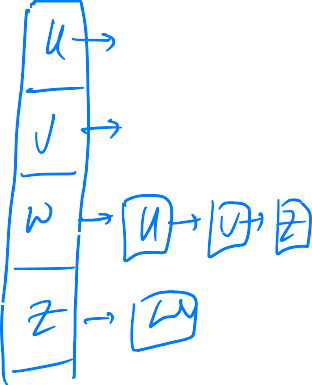 u →
v →
w → u → v → z
z → w